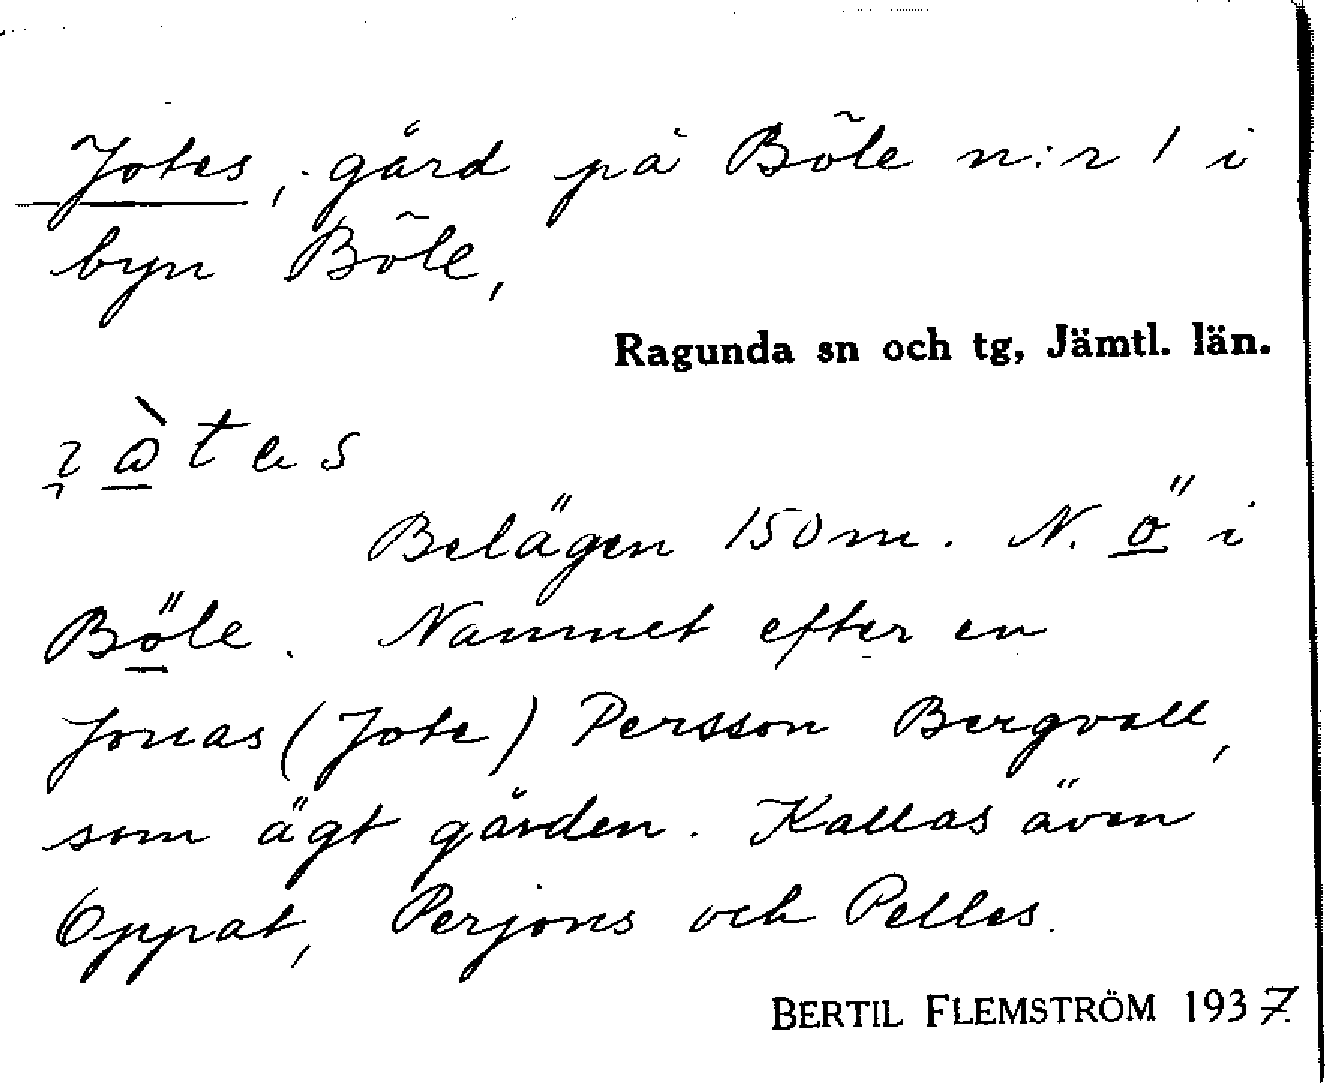 Jotes, gård på Böle n:r 1 i
byn Böle,
Ragunda sn och tg, Jämtl. län.
Belägen 150 m. N. ö i
Böle. Namnet efter en
Jonas (Jote) Persson Bergvall,
som ägt gården. Kallas även
Oppat, Perjons och Pelles.
BERTIL FLEMSTRÖM 1937